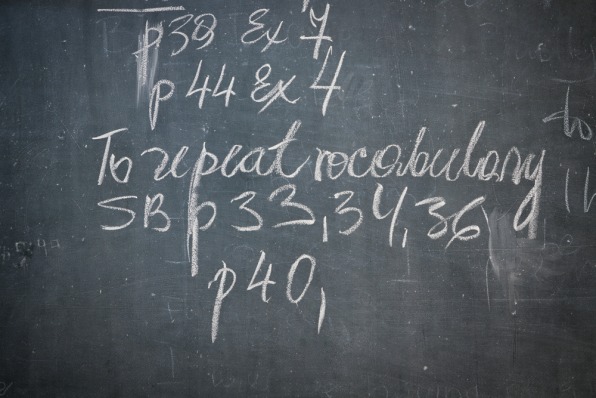 p38 Ex 7
p 44 Ex 4
To repeat vocabulary
SB p 33, 34, 36
p 40,
to